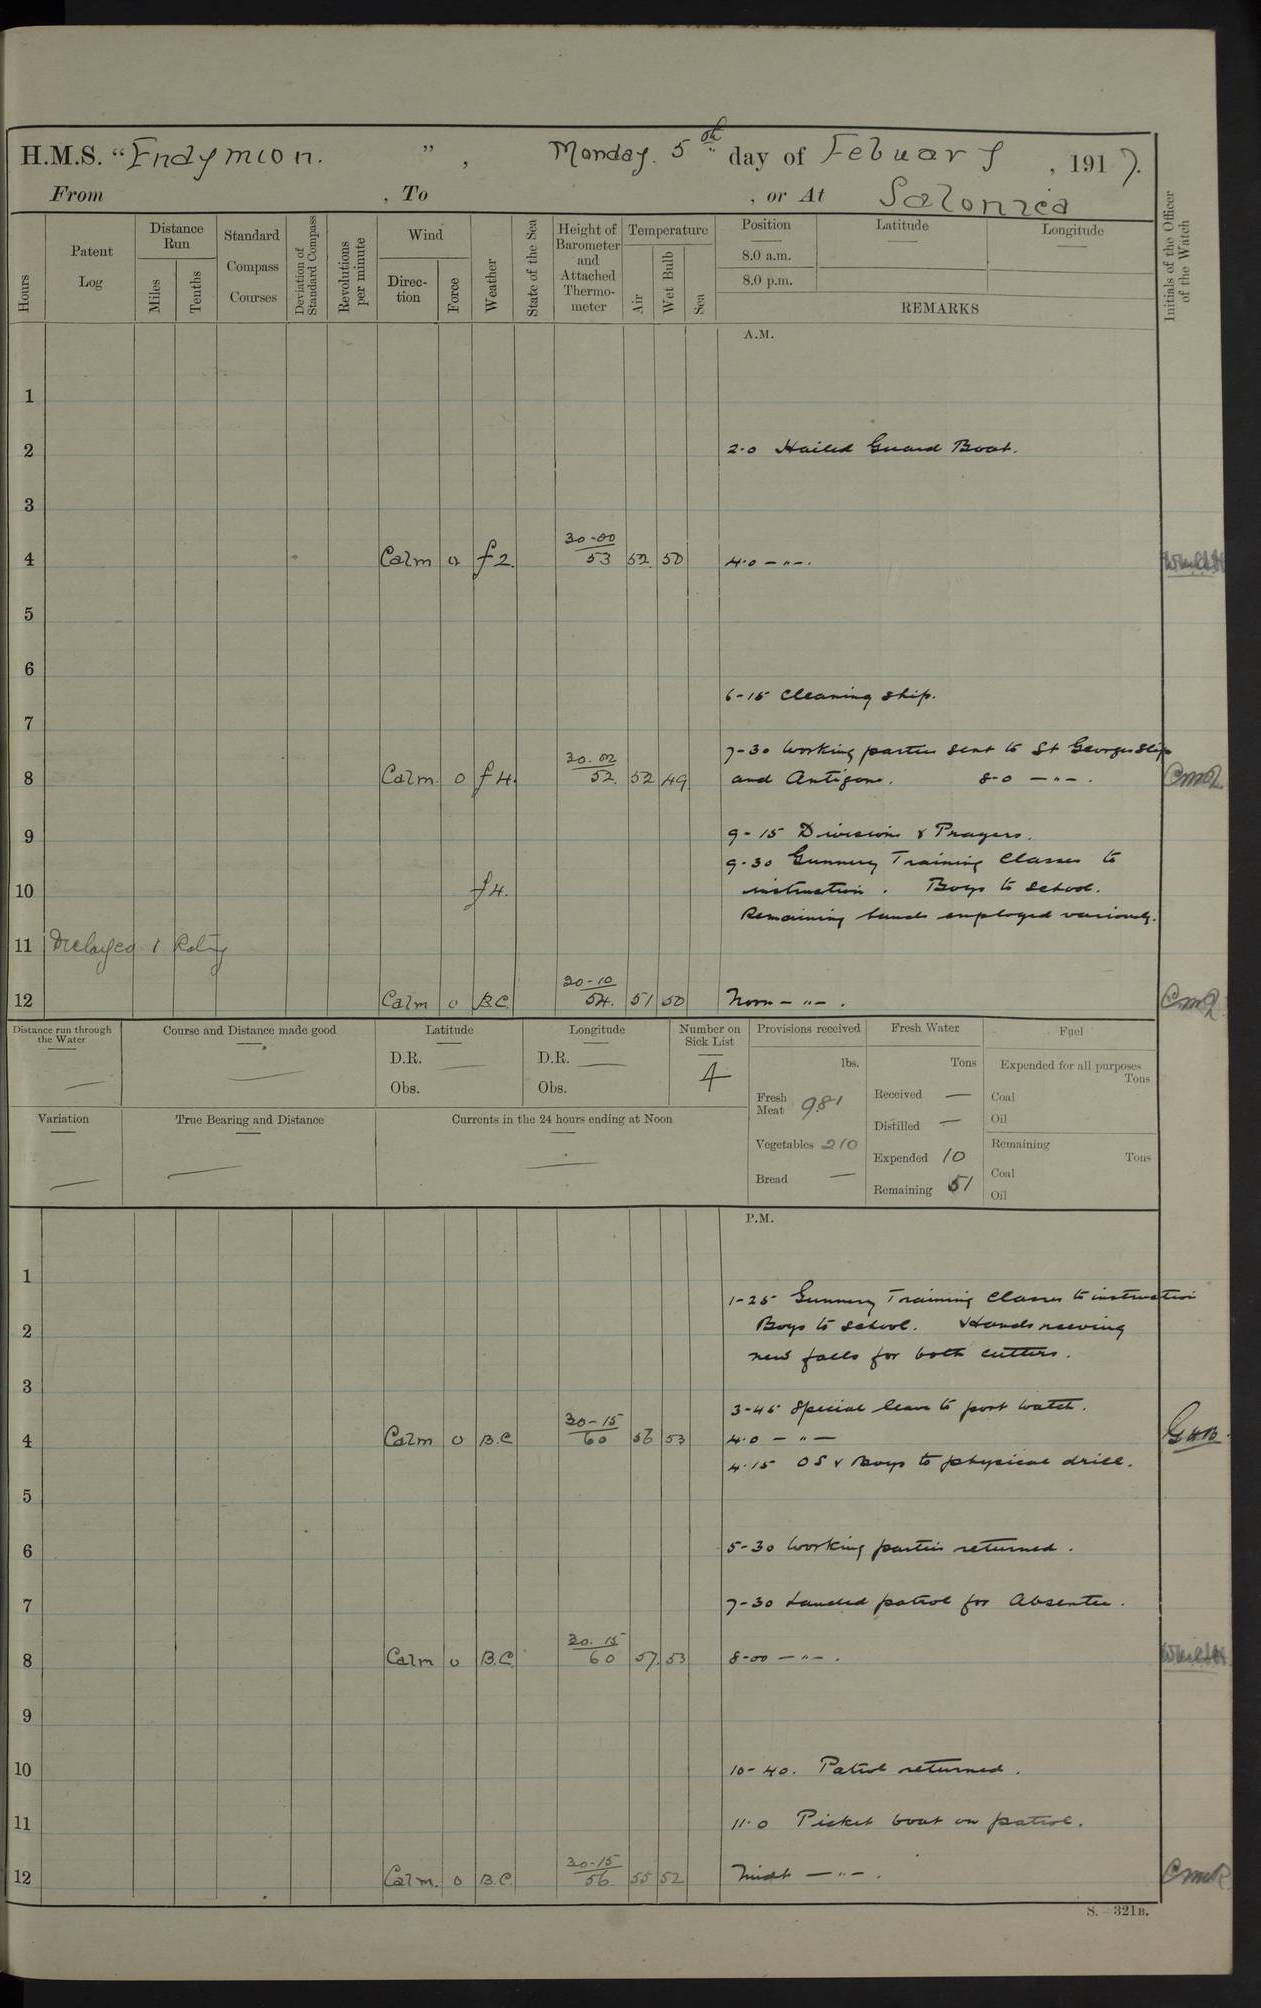 H.M.S. "Endymion. ", Monday. 5th day of Febuary, 1917.
From , To , or At Salonica
Hours
Patent Log
Distance Run
Miles
Tenths
Standard Compass Courses
Deviation of Standard Compass
Revolutions per minute
Wind
Direction
Force
Weather
State of the Sea
Height of Barometer and Attached Thermometer
Temperature
Air
Wet Bulb
Sea
Position
8.0 a.m.
8.0 p.m.
Latitude
Longitude
REMARKS
Initials of the Officer of the Watch
A.M.
1
2 2.0 Hailed Guard Boat.
3
4 Calm 0 f2. 30-00 53 52 50 4.0 — " —.
5
6
6-15 Cleaning ship.
7
7-30 Working parties sent to St Georges slip
8 Calm 0 f4. 30.02 52 52 49 and Antigone. 8-0 — " —.
9 9-15 Divisions & Prayers.
9-30 Gunnery Training Classes to
10 f4. instruction. Boys to school.
Remaining hands employed variously.
11 Rating
12 Calm 0 B.C. 30-10 54. 51 50 Noon — " —.
Distance run through the Water —
Course and Distance made good —
Latitude
D.R. —
Obs.
Longitude
D.R. —
Obs.
Number on Sick List
4
Variation —
True Bearing and Distance —
Currents in the 24 hours ending at Noon —
Provisions received
lbs.
Fresh Meat 981
Vegetables 210
Bread —
Fresh Water
Tons
Received —
Distilled —
Expended 10
Remaining 51
Fuel
Expended for all purposes
Tons
Coal
Oil
Remaining
Tons
Coal
Oil
P.M.
1
1-25 Gunnery Training Classes to instruction
2 Boys to school. Hands reeving
new falls for both cutters.
3
3-45 Special leave to port watch.
4 Calm 0 B.C 30-15 60 56 53 4.0 — " —
4.15 OS & Boys to physical drill.
5
6 5-30 Working parties returned.
7 7-30 Landed patrol for Absentee.
8 Calm 0 B.C. 30.15 60 57 53 8-00 — " —.
9
10 10-40. Patrol returned.
11 11.0 Picket boat on patrol.
12 Calm. 0 B.C. 30-15 56. 55 52 Midt — " —.
S.—321B.